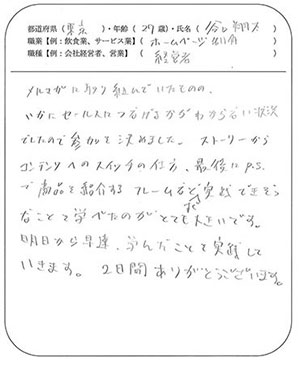 都道府県（東京）・年齢（29歳）・氏名（谷　翔太）
職業【例：飲食業、サービス業】（ホームページ制作）
職種【例：会社経営者、営業】（経営者）
メルマガに取り組んでいたものの、
いかにセールスにつなげるかがわからない状況
でしたので参加を決めました。ストーリーから
コンテンツへのスイッチの仕方、最後にP.S.
で商品を紹介するフレームなど、実践できそう
なことを学べたのがとても大きいです。
明日から早速、学んだことを実践して
いきます。2日間ありがとうございます。